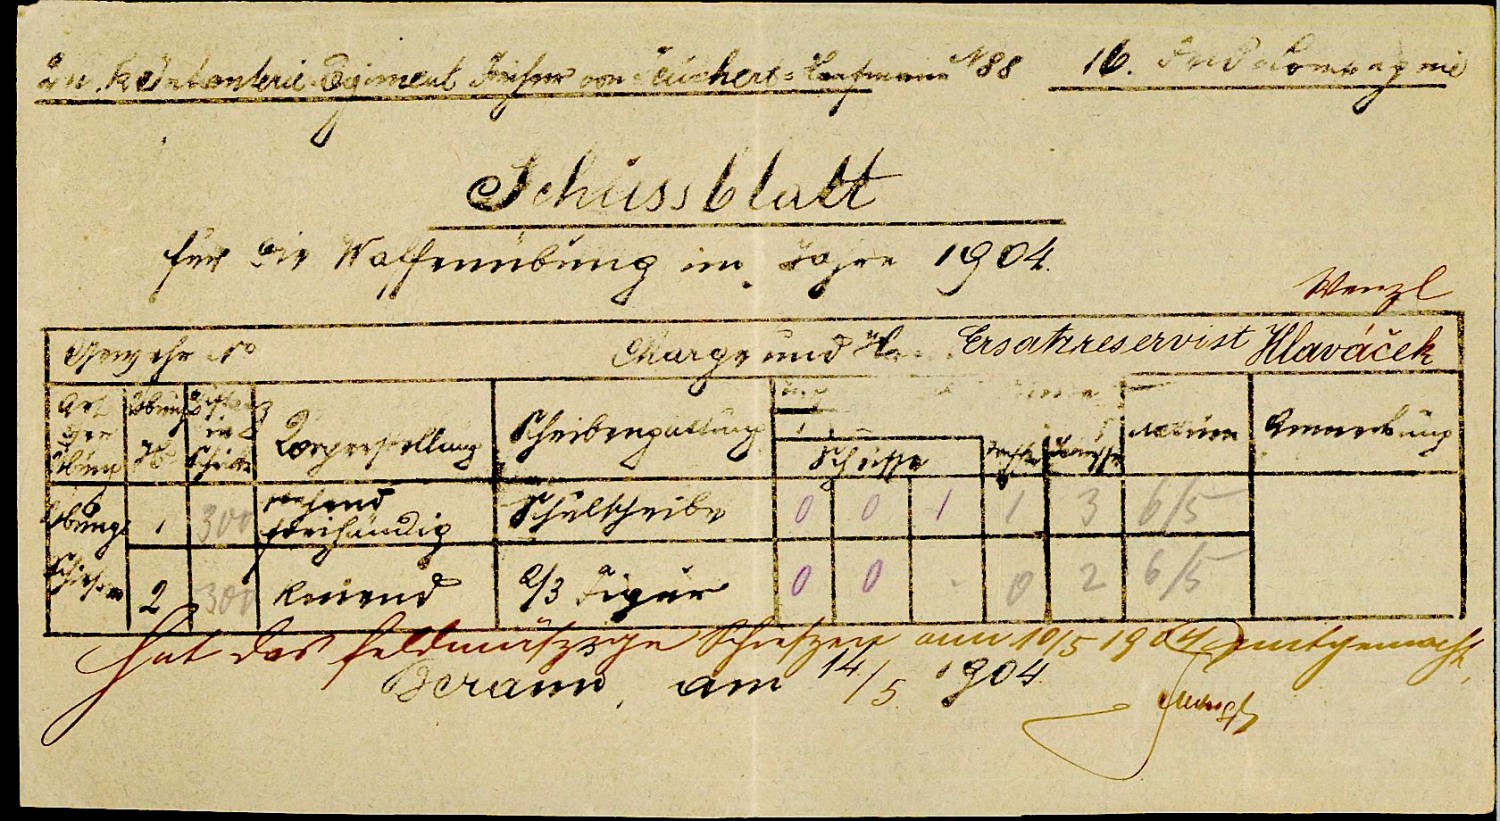 k. u. k. Infanterie Regiment Freiherr von Teuchert-Kauffmann N 88 16. Feld Compagnie
Schussblatt
für die Waffenübung im Jahre 1904.
Wenzl
Gewehr No Charge und Ersatzreservist Hlaváček
Art der Übung Übung No in Schritte Körperstellung Scheibengattung Schüsse Treffer Datum Anmerkung
Übungs 1 300 stehend freihändig Schulscheibe 0 0 1 1 3 6/5
Schießen 2 300 knieend 2/3 Figur 0 0 - 0 2 6/5
hat das feldmäßige Schießen am 10/5 1904 mitgemacht,
Beraun, am 14/5 1904